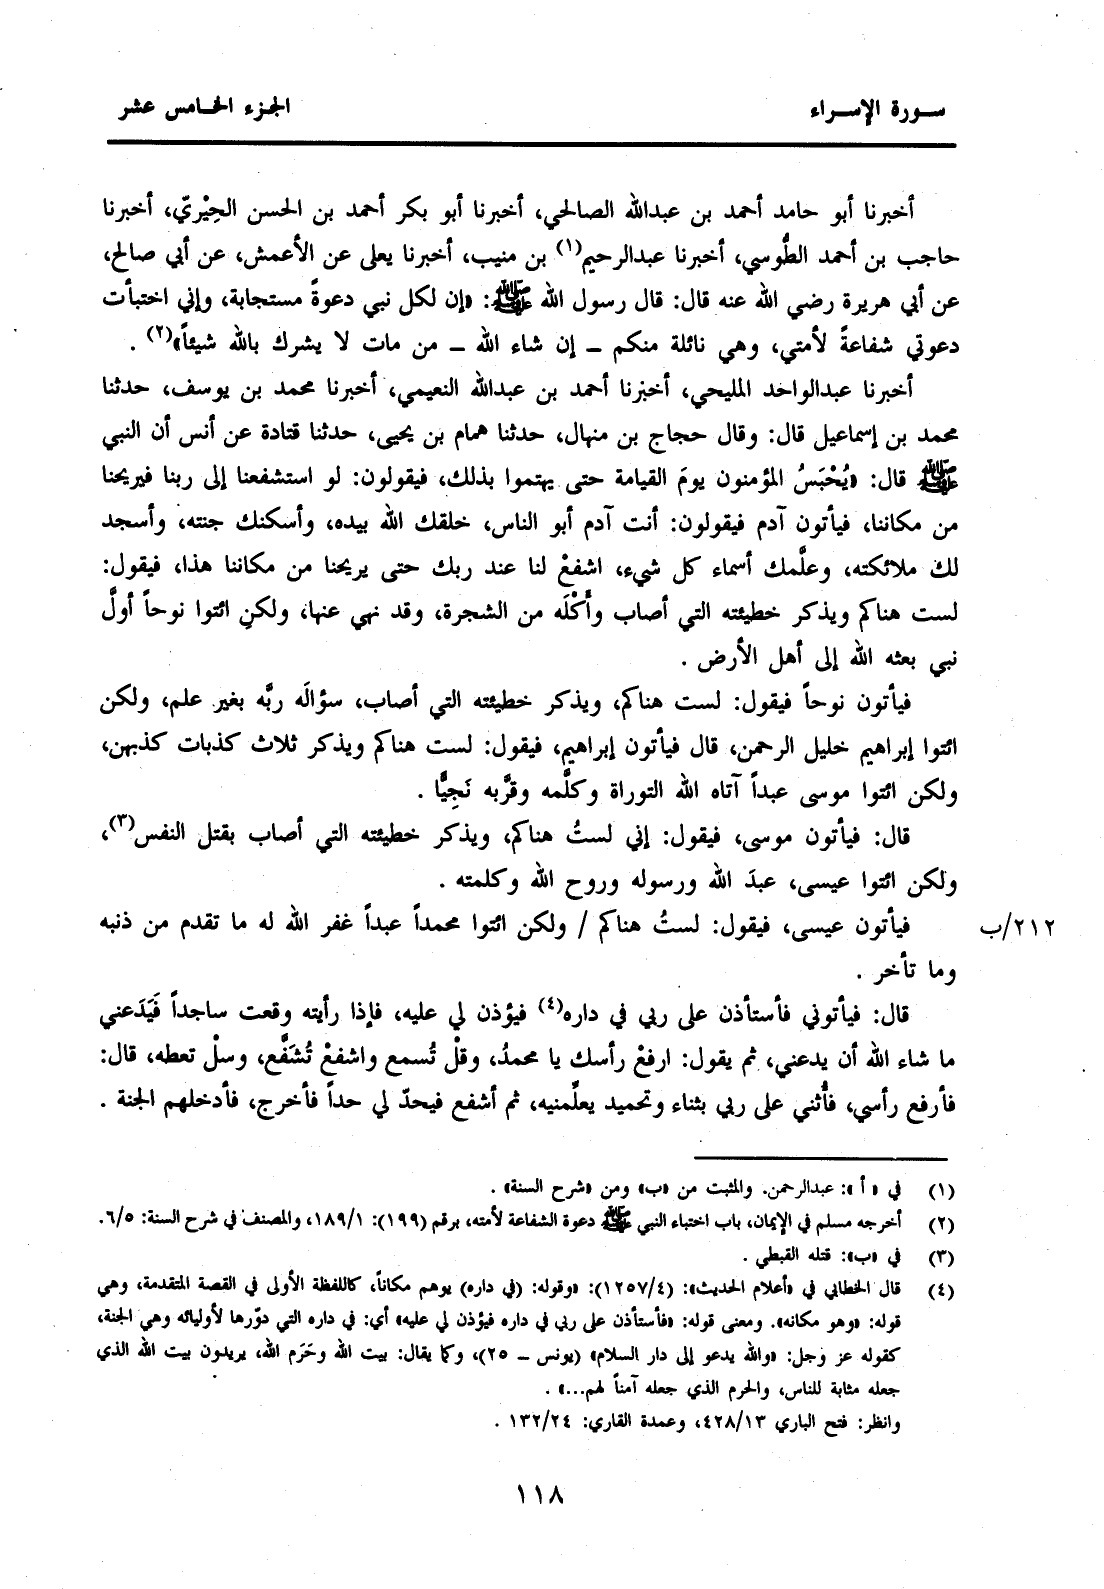 سورة الإسراء
الجزء الخامس عشر
أخبرنا أبو حامد أحمد بن عبدالله الصالحي، أخبرنا أبو بكر أحمد بن الحسن الحِيْريّ، أخبرنا
حاجب بن أحمد الطُّوسي، أخبرنا عبدالرحيم(١) بن منيب، أخبرنا يعلى عن الأعمش، عن أبي صالح،
عن أبي هريرة رضي الله عنه قال: قال رسول الله ﷺ: «إن لكل نبي دعوةً مستجابة، وإني اختبأت
دعوتي شفاعةً لأمتي، وهي نائلة منكم ــ إن شاء الله ــ من مات لا يشرك بالله شيئاً»(٢) .
أخبرنا عبدالواحد المليحي، أخبرنا أحمد بن عبدالله النعيمي، أخبرنا محمد بن يوسف، حدثنا
محمد بن إسماعيل قال: وقال حجاج بن منهال، حدثنا همام بن يحيى، حدثنا قتادة عن أنس أن النبي
ﷺ قال: «يُحْبَسُ المؤمنون يومَ القيامة حتى يهتموا بذلك، فيقولون: لو استشفعنا إلى ربنا فيريحنا
من مكاننا، فيأتون آدم فيقولون: أنت آدم أبو الناس، خلقك الله بيده، وأسكنك جنته، وأسجد
لك ملائكته، وعلَّمك أسماء كل شيء، اشفعْ لنا عند ربك حتى يريحنا من مكاننا هذا، فيقول:
لست هناكم ويذكر خطيئته التي أصاب وأَكْلَه من الشجرة، وقد نهي عنها، ولكنِ ائتوا نوحاً أولَّ
نبي بعثه الله إلى أهل الأرض .
فيأتون نوحاً فيقول: لست هناكم، ويذكر خطيئته التي أصاب، سؤالَه ربَّه بغير علم، ولكن
ائتوا إبراهيم خليل الرحمن، قال فيأتون إبراهيم، فيقول: لست هناكم ويذكر ثلاث كذبات كذبهن،
ولكن ائتوا موسى عبداً آتاه الله التوراة وكلَّمه وقرَّبه نَجِيًّا .
قال: فيأتون موسى، فيقول: إني لستُ هناكم، ويذكر خطيئته التي أصاب بقتل النفس(٣)،
ولكن ائتوا عيسى، عبدَ الله ورسوله وروح الله وكلمته .
فيأتون عيسى، فيقول: لستُ هناكم / ولكن ائتوا محمداً عبداً غفر الله له ما تقدم من ذنبه
٢١٢/ب
وما تأخر .
قال: فيأتوني فأستأذن على ربي في داره(٤) فيؤذن لي عليه، فإذا رأيته وقعت ساجداً فَيَدَعني
ما شاء الله أن يدعني، ثم يقول: ارفعْ رأسك يا محمدُ، وقلْ تُسمع واشفعْ تُشَفَّع، وسلْ تعطه، قال:
فأرفع رأسي، فأُثني على ربي بثناء وتحميد يعلّمنيه، ثم أشفع فيحدّ لي حداً فأخرج، فأدخلهم الجنة .
(١) في «أ»: عبدالرحمن. والمثبت من «ب» ومن «شرح السنة» .
(٢) أخرجه مسلم في الإيمان، باب اختباء النبي ﷺ دعوة الشفاعة لأمته، برقم (١٩٩): ١٨٩/١، والمصنف في شرح السنة: ٦/٥.
(٣) في «ب»: قتله القبطي .
(٤) قال الخطابي في «أعلام الحديث»: (١٢٥٧/٤): «وقوله: (في داره) يوهم مكاناً، كاللفظة الأولى في القصة المتقدمة، وهي
قوله: «وهو مكانه». ومعنى قوله: «فأستأذن على ربي في داره فيؤذن لي عليه» أي: في داره التي دوّرها لأوليائه وهي الجنة،
كقوله عز وجل: «والله يدعو إلى دار السلام» (يونس ــ ٢٥)، وكما يقال: بيت الله وحَرَم الله، يريدون بيت الله الذي
جعله مثابة للناس، والحرم الذي جعله آمناً لهم...» .
وانظر: فتح الباري ٤٢٨/١٣، وعمدة القاري: ١٣٢/٢٤ .
١١٨